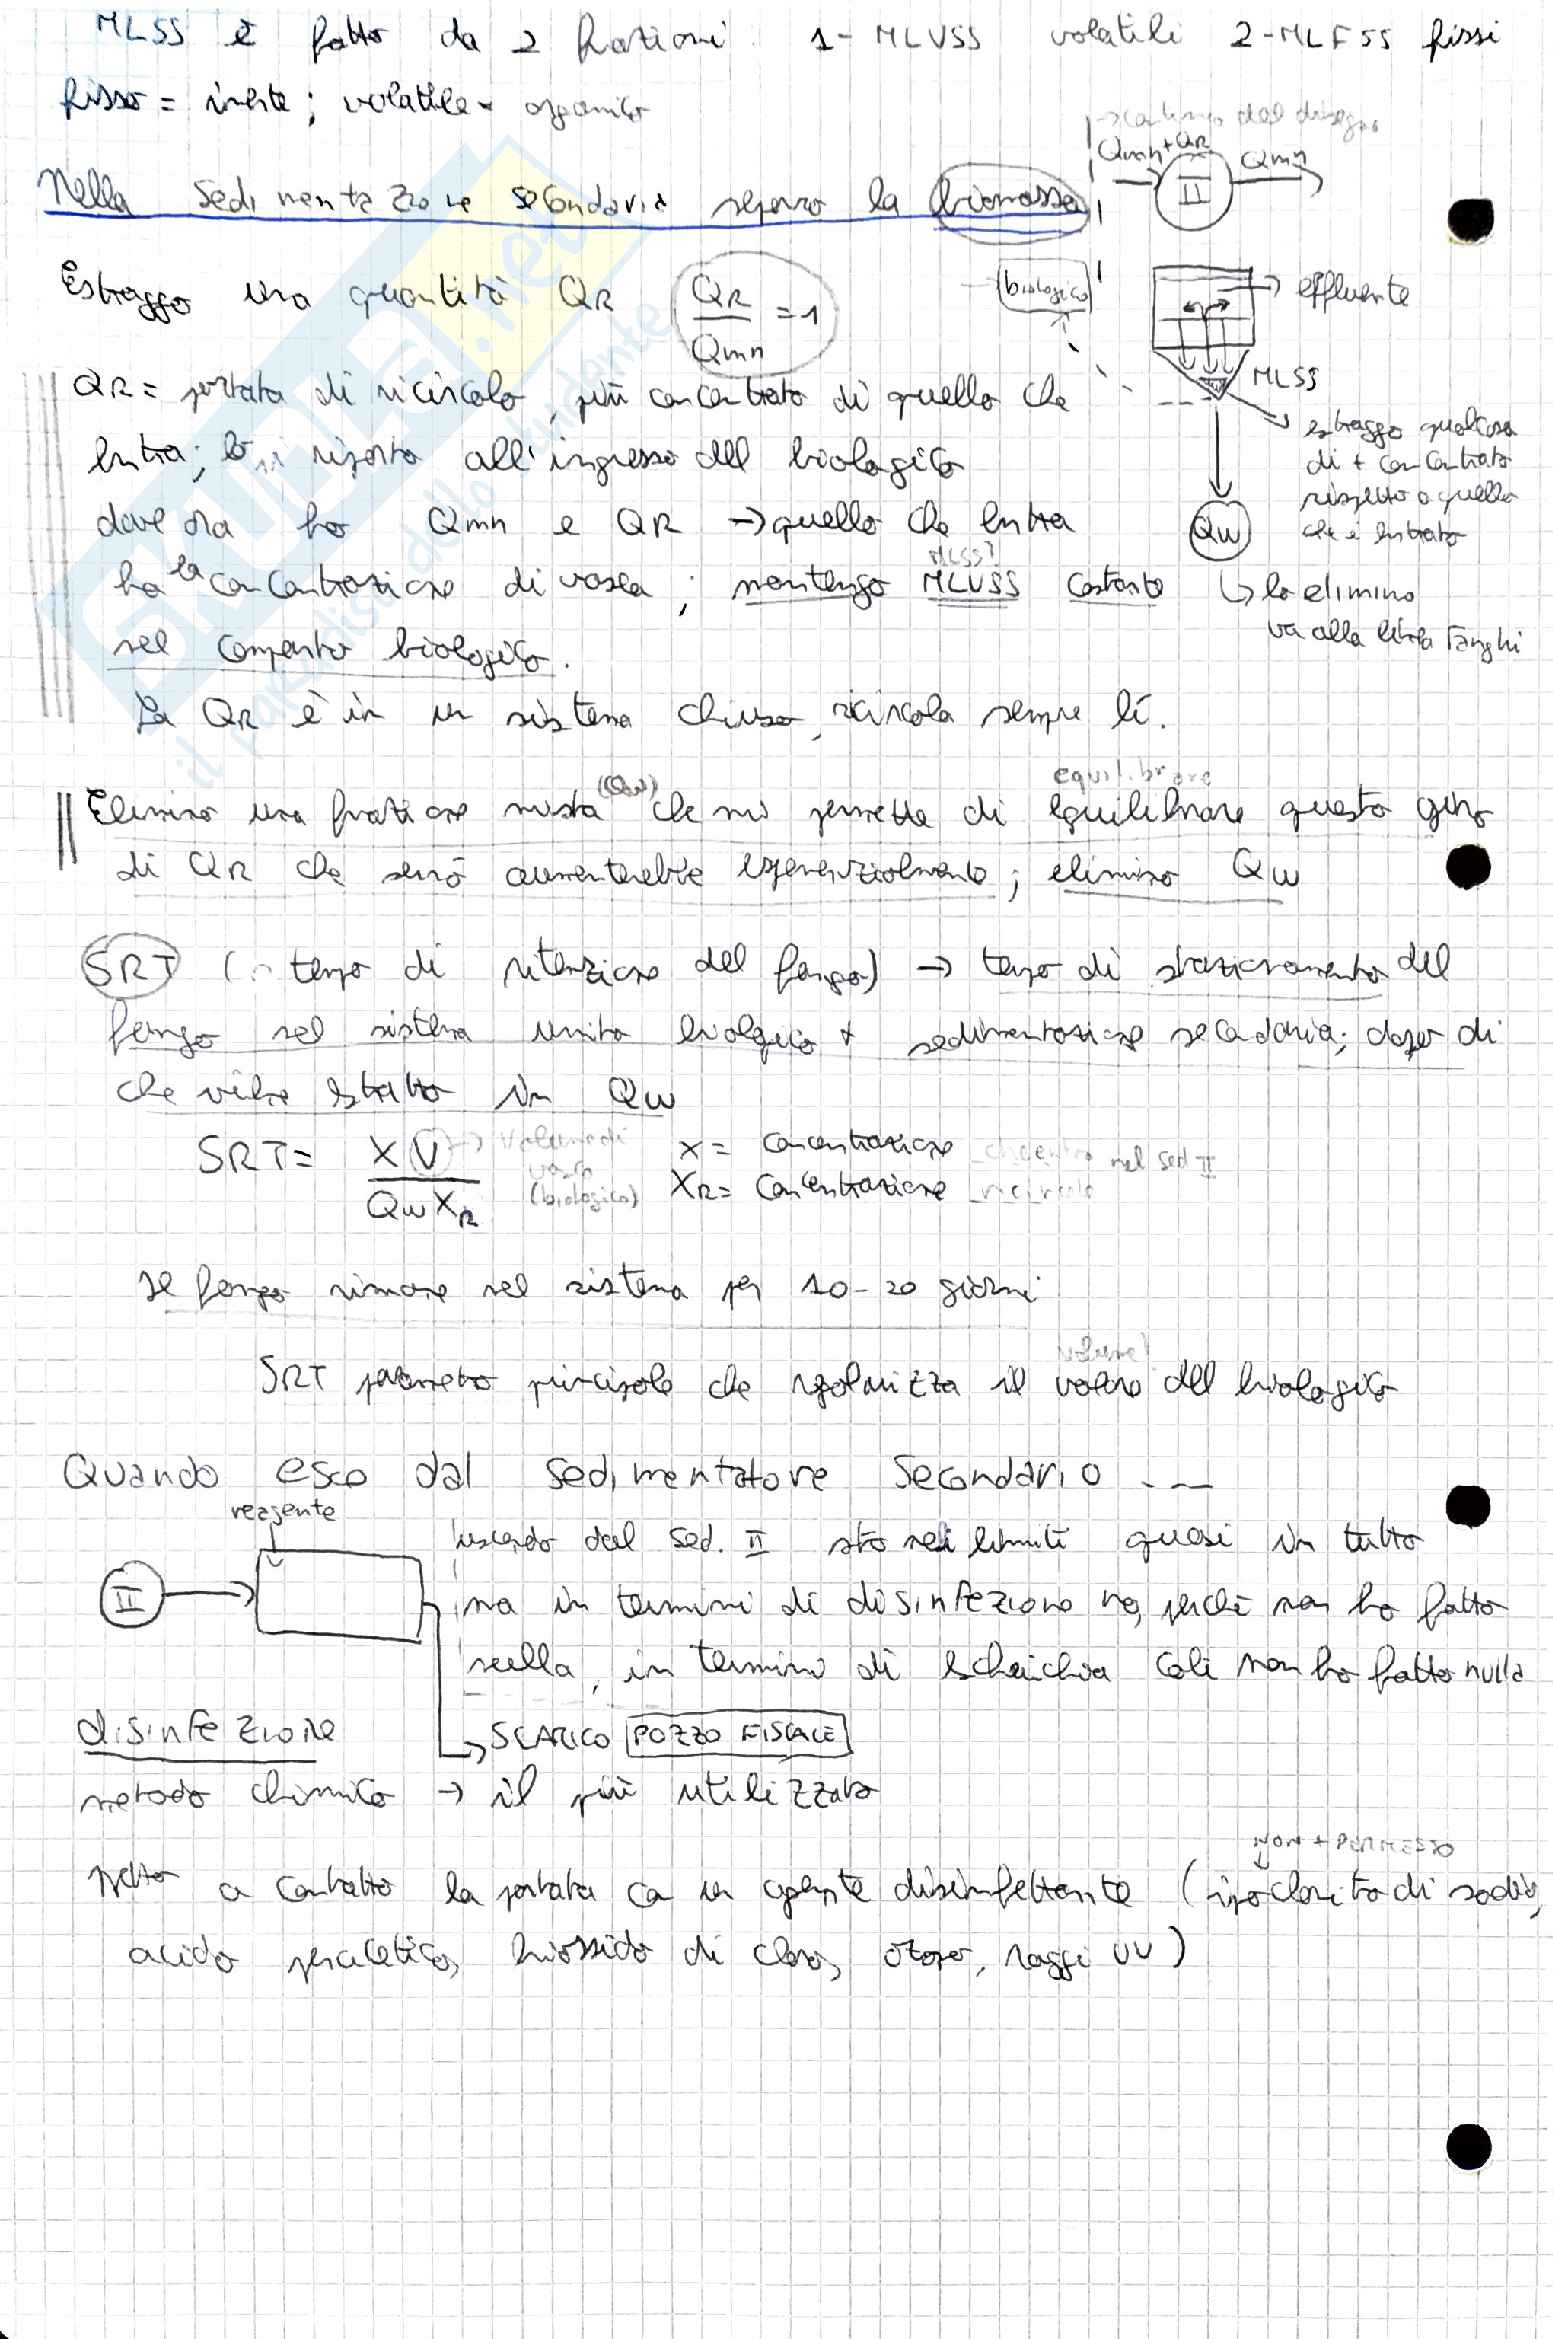 MLSS è fatto da 2 frazioni 1- MLVSS volatili 2-MLFSS fissi
fisso = inerte ; volatile = organico
→ continuo del disegno
Qmn+QR
Qmn
II
Nella Sedimentazione secondaria separo la biomassa
Estraggo una quantità QR QR/Qmn = 1
biologico
effluente
MLSS
QR = portata di ricircolo, più concentrato di quello che
entra; lo si riporta all'ingresso del biologico
dove ora ho Qmn e QR → quello che entra
MLSS?
ha la concentrazione di vasca ; mantengo MLVSS costante
nel comparto biologico.
estraggo qualcosa
di + concentrato
rispetto a quello
che è entrato
Qw
↳ lo elimino
va alla linea Fanghi
La QR è in un sistema chiuso, ricircola sempre lì.
equilibrare
Elimino una frazione mista (Qw) che mi permette di equilibrare questo giro
di QR che sennò aumenterebbe esponenzialmente; elimino Qw
SRT ( tempo di ritenzione del fango) → tempo di stazionamento del
fango nel sistema unito biologico + sedimentazione secondaria; dopo di
che viene estratto in Qw
SRT = X V / Qw XR
→ Volume di
vasca
(biologico)
X = concentrazione nel sed II
XR = Concentrazione ricircolo
Il fango rimane nel sistema per 10-20 giorni
volume!
SRT parametro principale che regolarizza il volume del biologico
Quando esco dal sedimentatore secondario ...
reagente
II
uscendo dal sed. II sto nei limiti quasi in tutto
ma in termini di disinfezione no, perchè non ho fatto
nulla, in termini di Escherichia coli non ho fatto nulla
SCARICO POZZO FISCALE
disinfezione
metodo chimico → il più utilizzato
NON + PERMESSO
Metto a contatto la portata con un agente disinfettante (ipoclorito di sodio,
acido peracetico, biossido di cloro, ozono, raggi UV)